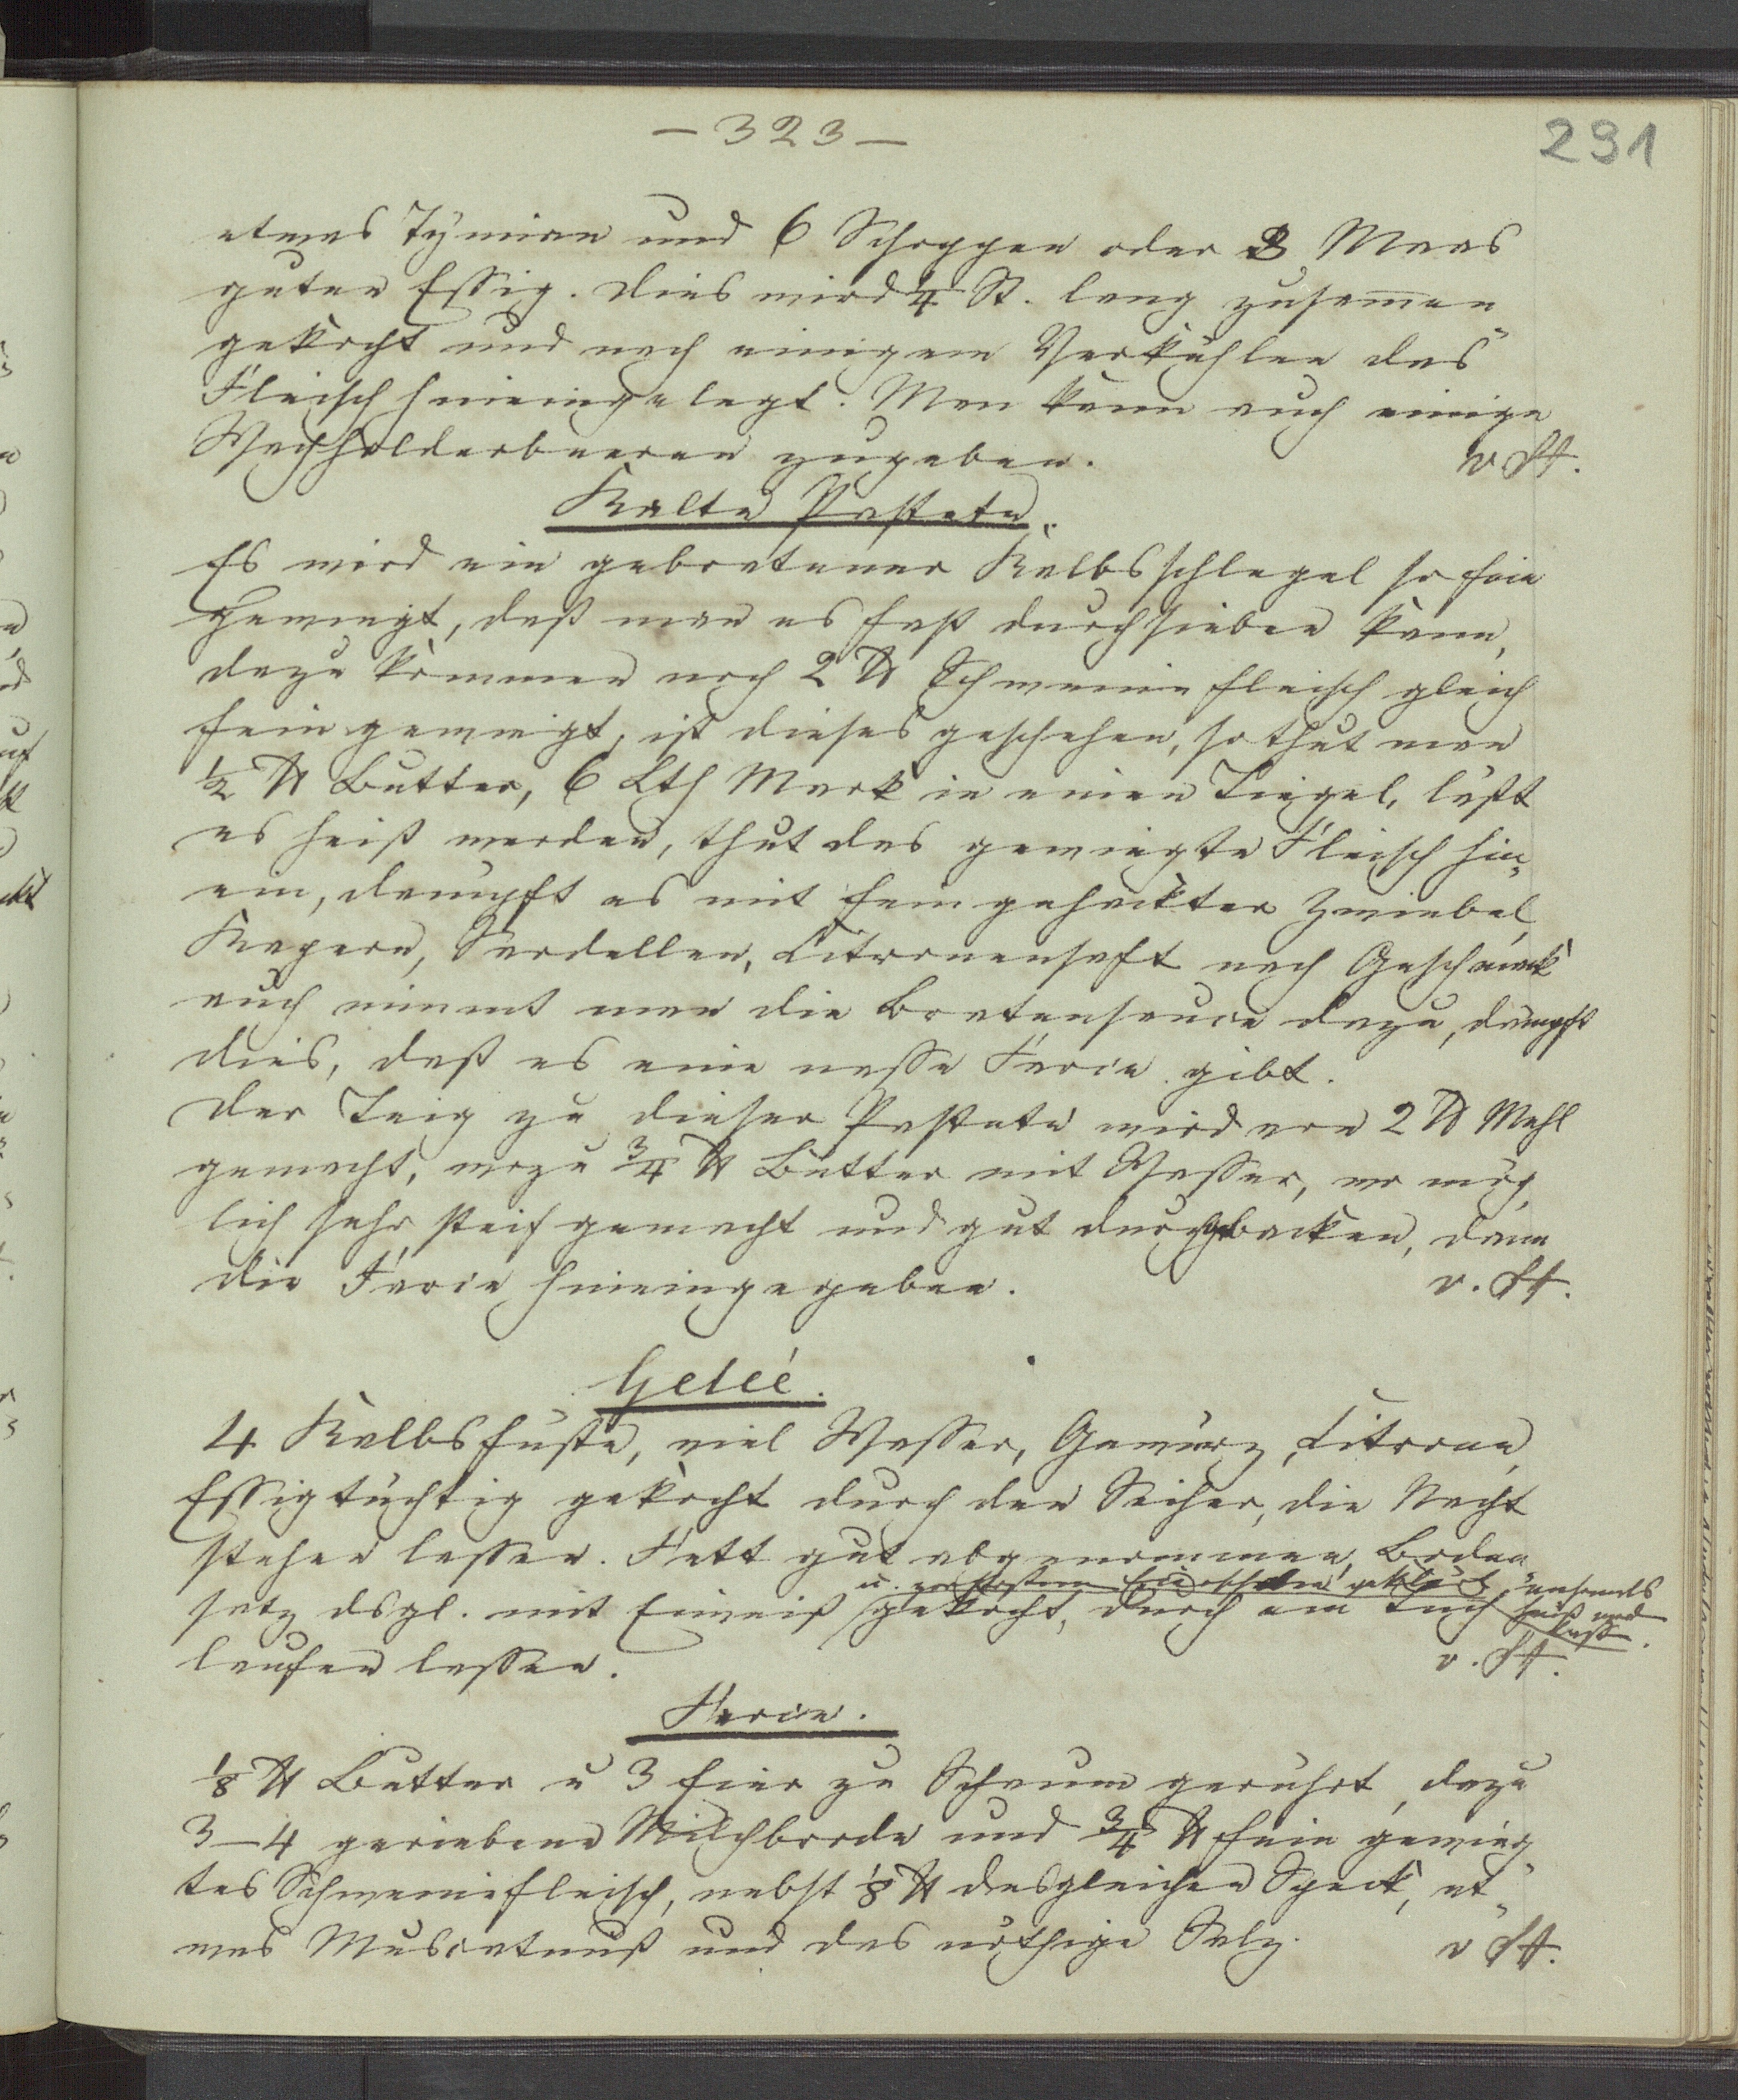 – 323 –
291
etwas Tymian und 6 Schoppen oder 3 Maas
guten Essig. Dies wird 4 St. lang zusamen
gekocht und nach einigem Verkühlen das
Fleisch hineingelegt. Man kann auch einige
Wachholderbeeren zugeben.
Kalte Pastete.
Es wird ein gebratener Kalbsschlegel so fein
gewiegt, daß man es fast durchsieben kann,
dazu kommen noch 2 ℔ Schweinefleisch gleich
fein gewiegt, ist dieses geschehen, so thut man
1/2 ℔ Butter, 6 Lth Mark in einen Tiegel, läßt
es heiß werden, thut das gewiegte Fleisch hin„
ein, dämpft es mit fein gehackter Zwiebel,
Kapern, Sardellen, Citronensaft nach Geschmack
auch nimmt man die Bratensauce dazu, dämpft
dies, daß es eine nasse Farce gibt.
Der Teig zu dieser Pastete wird von 2 ℔ Mehl
gemacht, wozu 3/4 ℔ Butter mit Wasser, wo mög„
lich sehr steif gemacht und gut durchbacken, dann
die Farce hineingegeben.
Geleé.
4 Kalbsfüße, viel Wasser, Gewürz, Citrone,
Essig tüchtig gekocht durch den Seiher, die Nacht
stehen lassen. Fett gut abgenommen, Boden„
u. zerstoßenen Eierschalen geklärt
satz dsgl. mit Eiweiß gekocht, durch ein Tuch
laufen lassen.
Farce.
1/8 ℔ Butter u 3 Eier zu Schaum gerührt, dazu
3–4 geriebene Milchbrode und 3/4 ℔ fein gewieg„
tes Schweinefleisch, nebst 1/8 ℔ desgleichen Speck, et„
was Muscatnuß und das nöthige Salz.